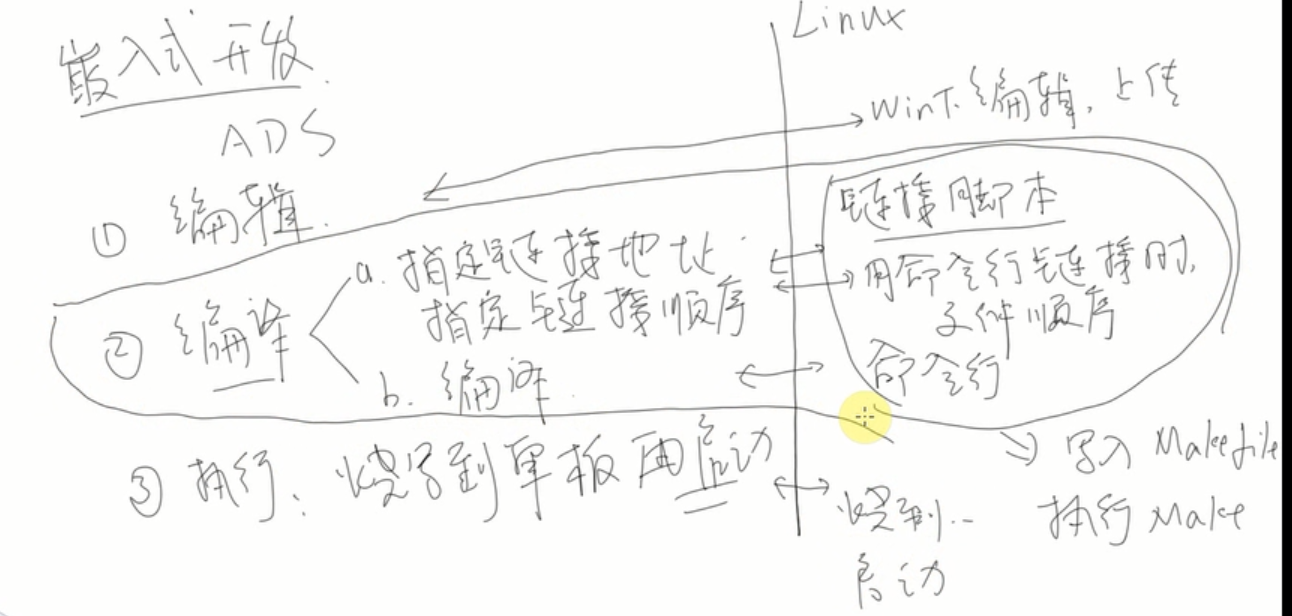 嵌入式开发
ADS
① 编辑
② 编译
a. 指定链接地址
指定链接顺序
b. 编译
③ 执行: 烧写到单板再启动
Linux
Win下编辑, 上传
链接脚本
用命令行链接时,
文件顺序
命令行
写入 Makefile
执行 Make
烧到..
启动